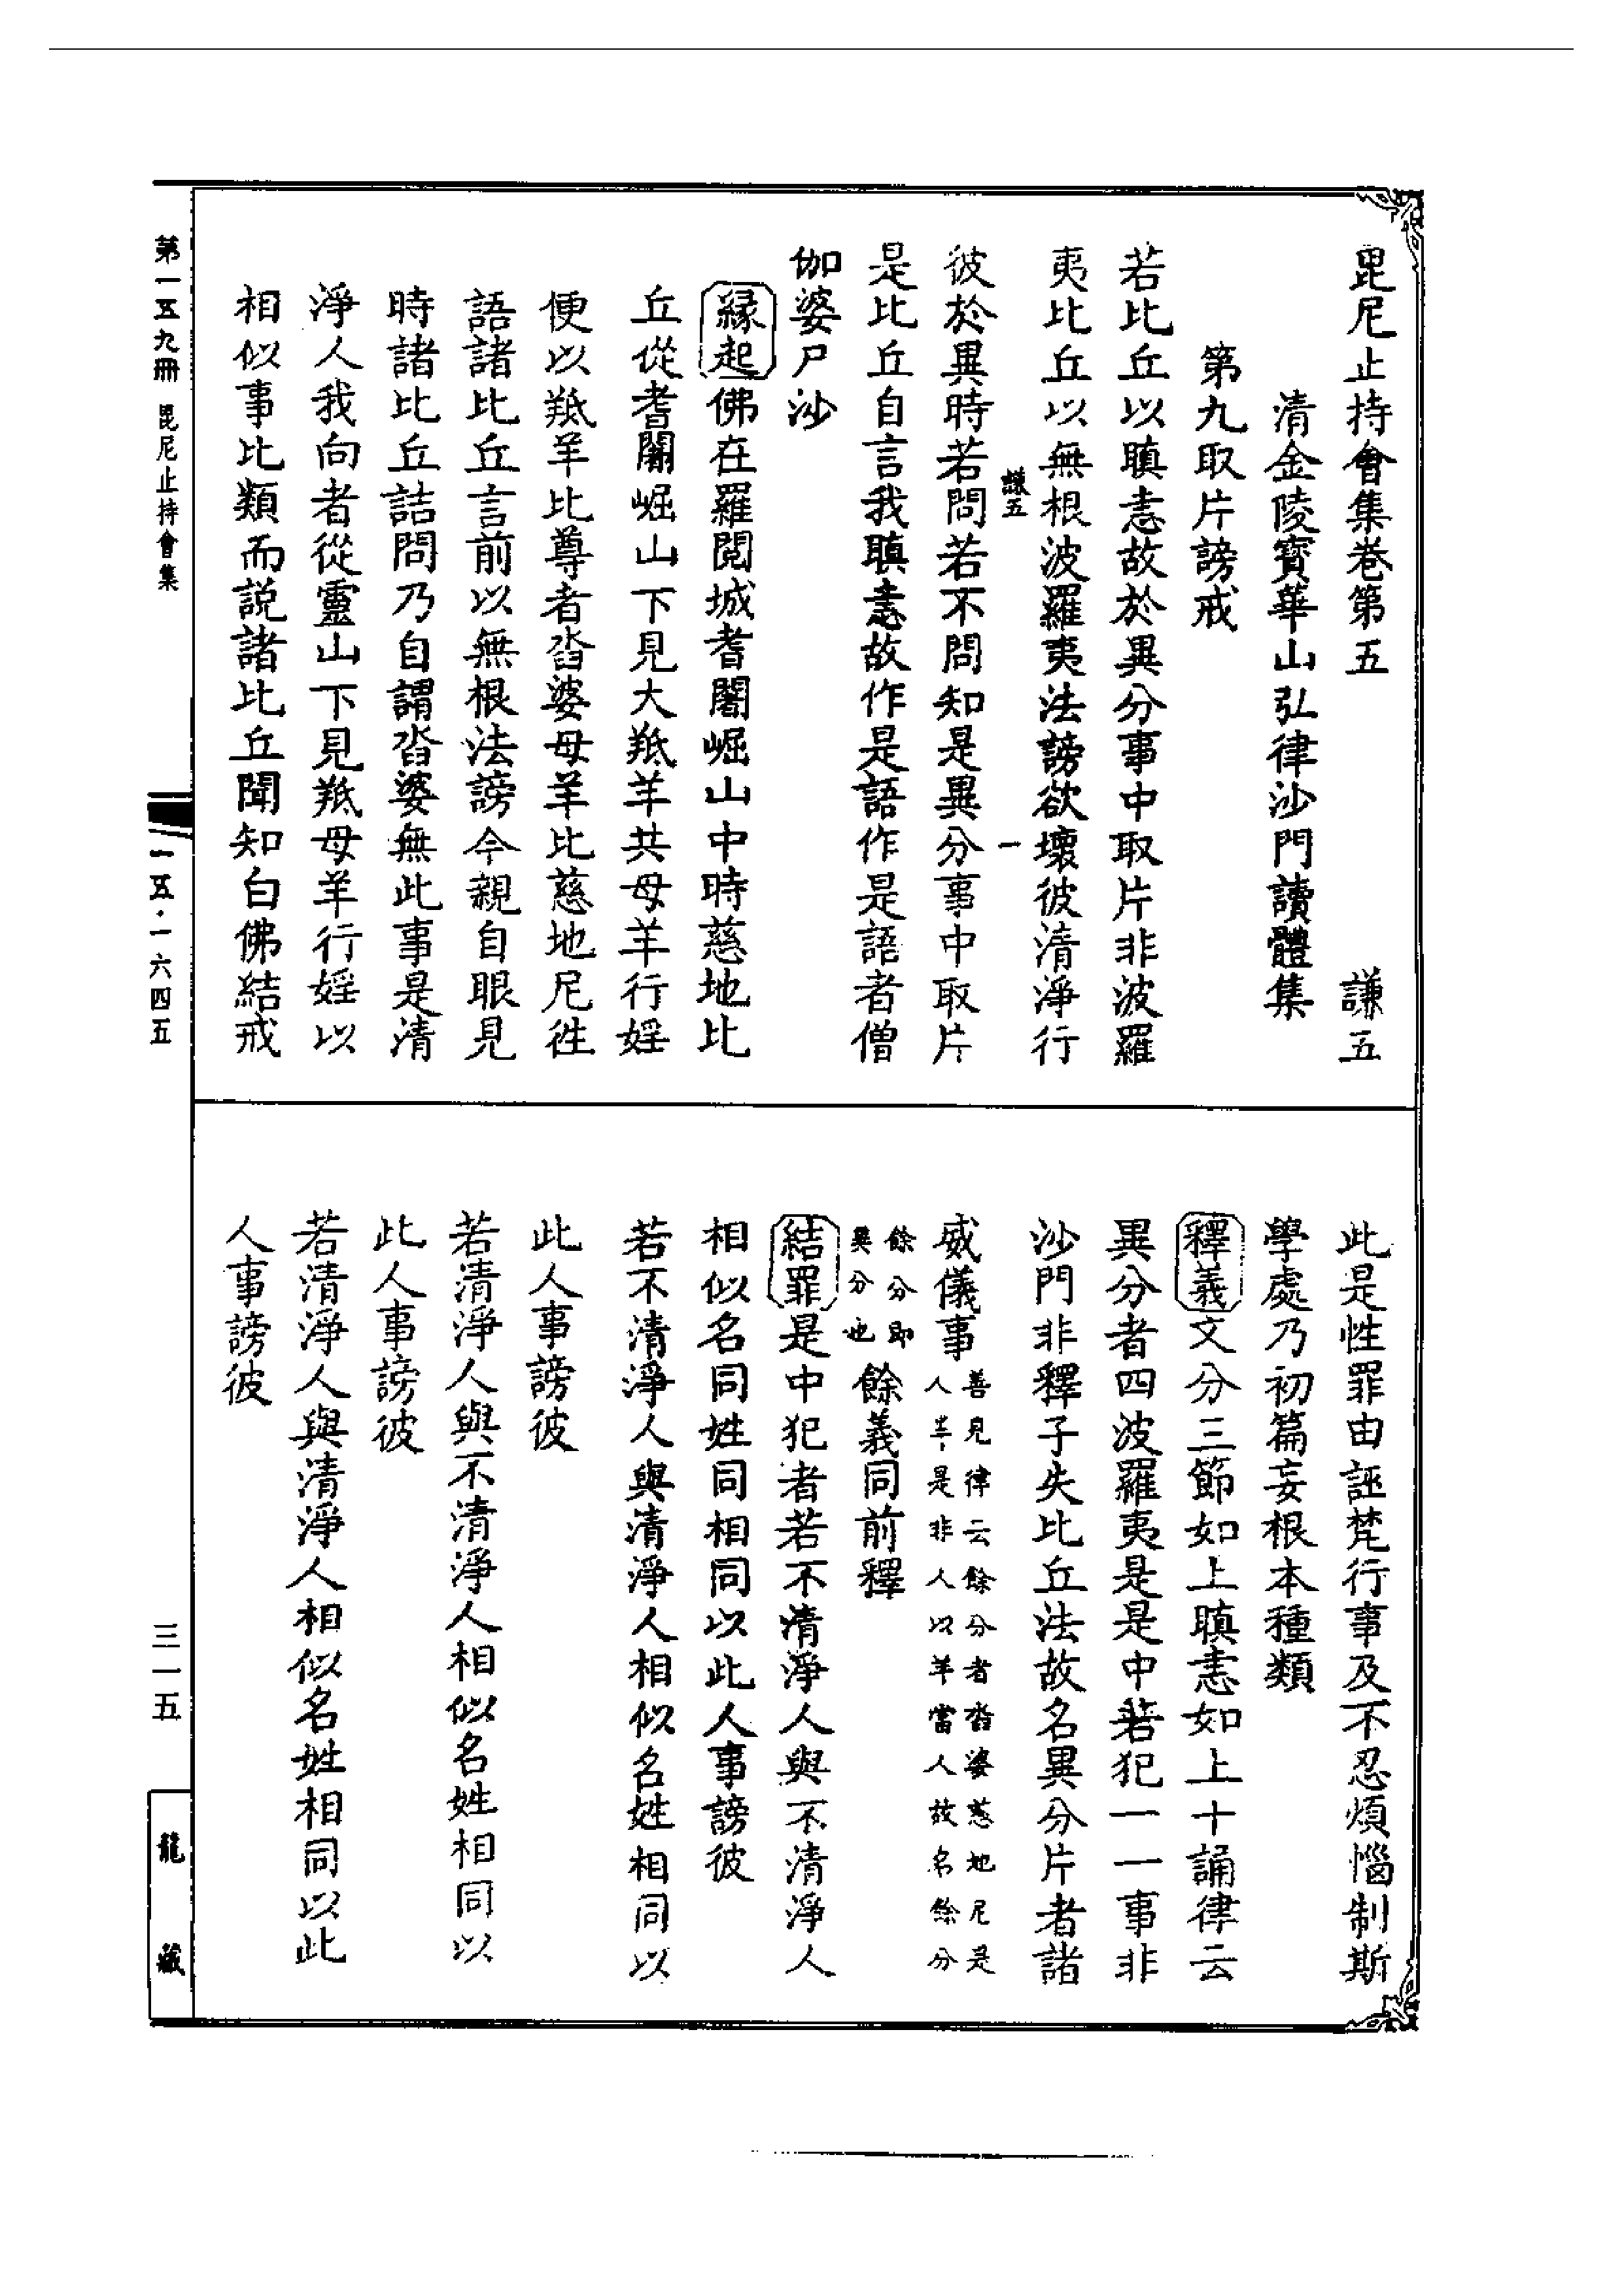 毘尼止持會集卷第五　謙五
清金陵寶華山弘律沙門讀體集
第九取片謗戒
若比丘以瞋恚故於異分事中取片非波羅
夷比丘以無根波羅夷法謗欲壞彼清淨行
謙五　一
彼於異時若問若不問知是異分事中取片
是比丘自言我瞋恚故作是語作是語者僧
伽婆尸沙
緣起佛在羅閱城耆闍崛山中時慈地比
丘從耆闍崛山下見大羝羊共母羊行婬
便以羝羊比尊者沓婆母羊比慈地尼徃
語諸比丘言前以無根法謗今親自眼見
時諸比丘詰問乃自謂沓婆無此事是清
淨人我向者從靈山下見羝母羊行婬以
相似事比類而説諸比丘聞知白佛結戒
此是性罪由誣梵行事及不忍煩惱制斯
學處乃初篇妄根本種類
釋義文分三節如上瞋恚如上十誦律云
異分者四波羅夷是是中若犯一一事非
沙門非釋子失比丘法故名異分片者諸
威儀事善見律云餘分者沓婆慈地尼是
人羊是非人以羊當人故名餘分
餘分即
異分也餘義同前釋
結罪是中犯者若不清淨人與不清淨人
相似名同姓同相同以此人事謗彼
若不清淨人與清淨人相似名姓相同以
此人事謗彼
若清淨人與不清淨人相似名姓相同以
此人事謗彼
若清淨人與清淨人相似名姓相同以此
人事謗彼
第一五九冊　毘尼止持會集
一五·一六四五
三一五
龍藏